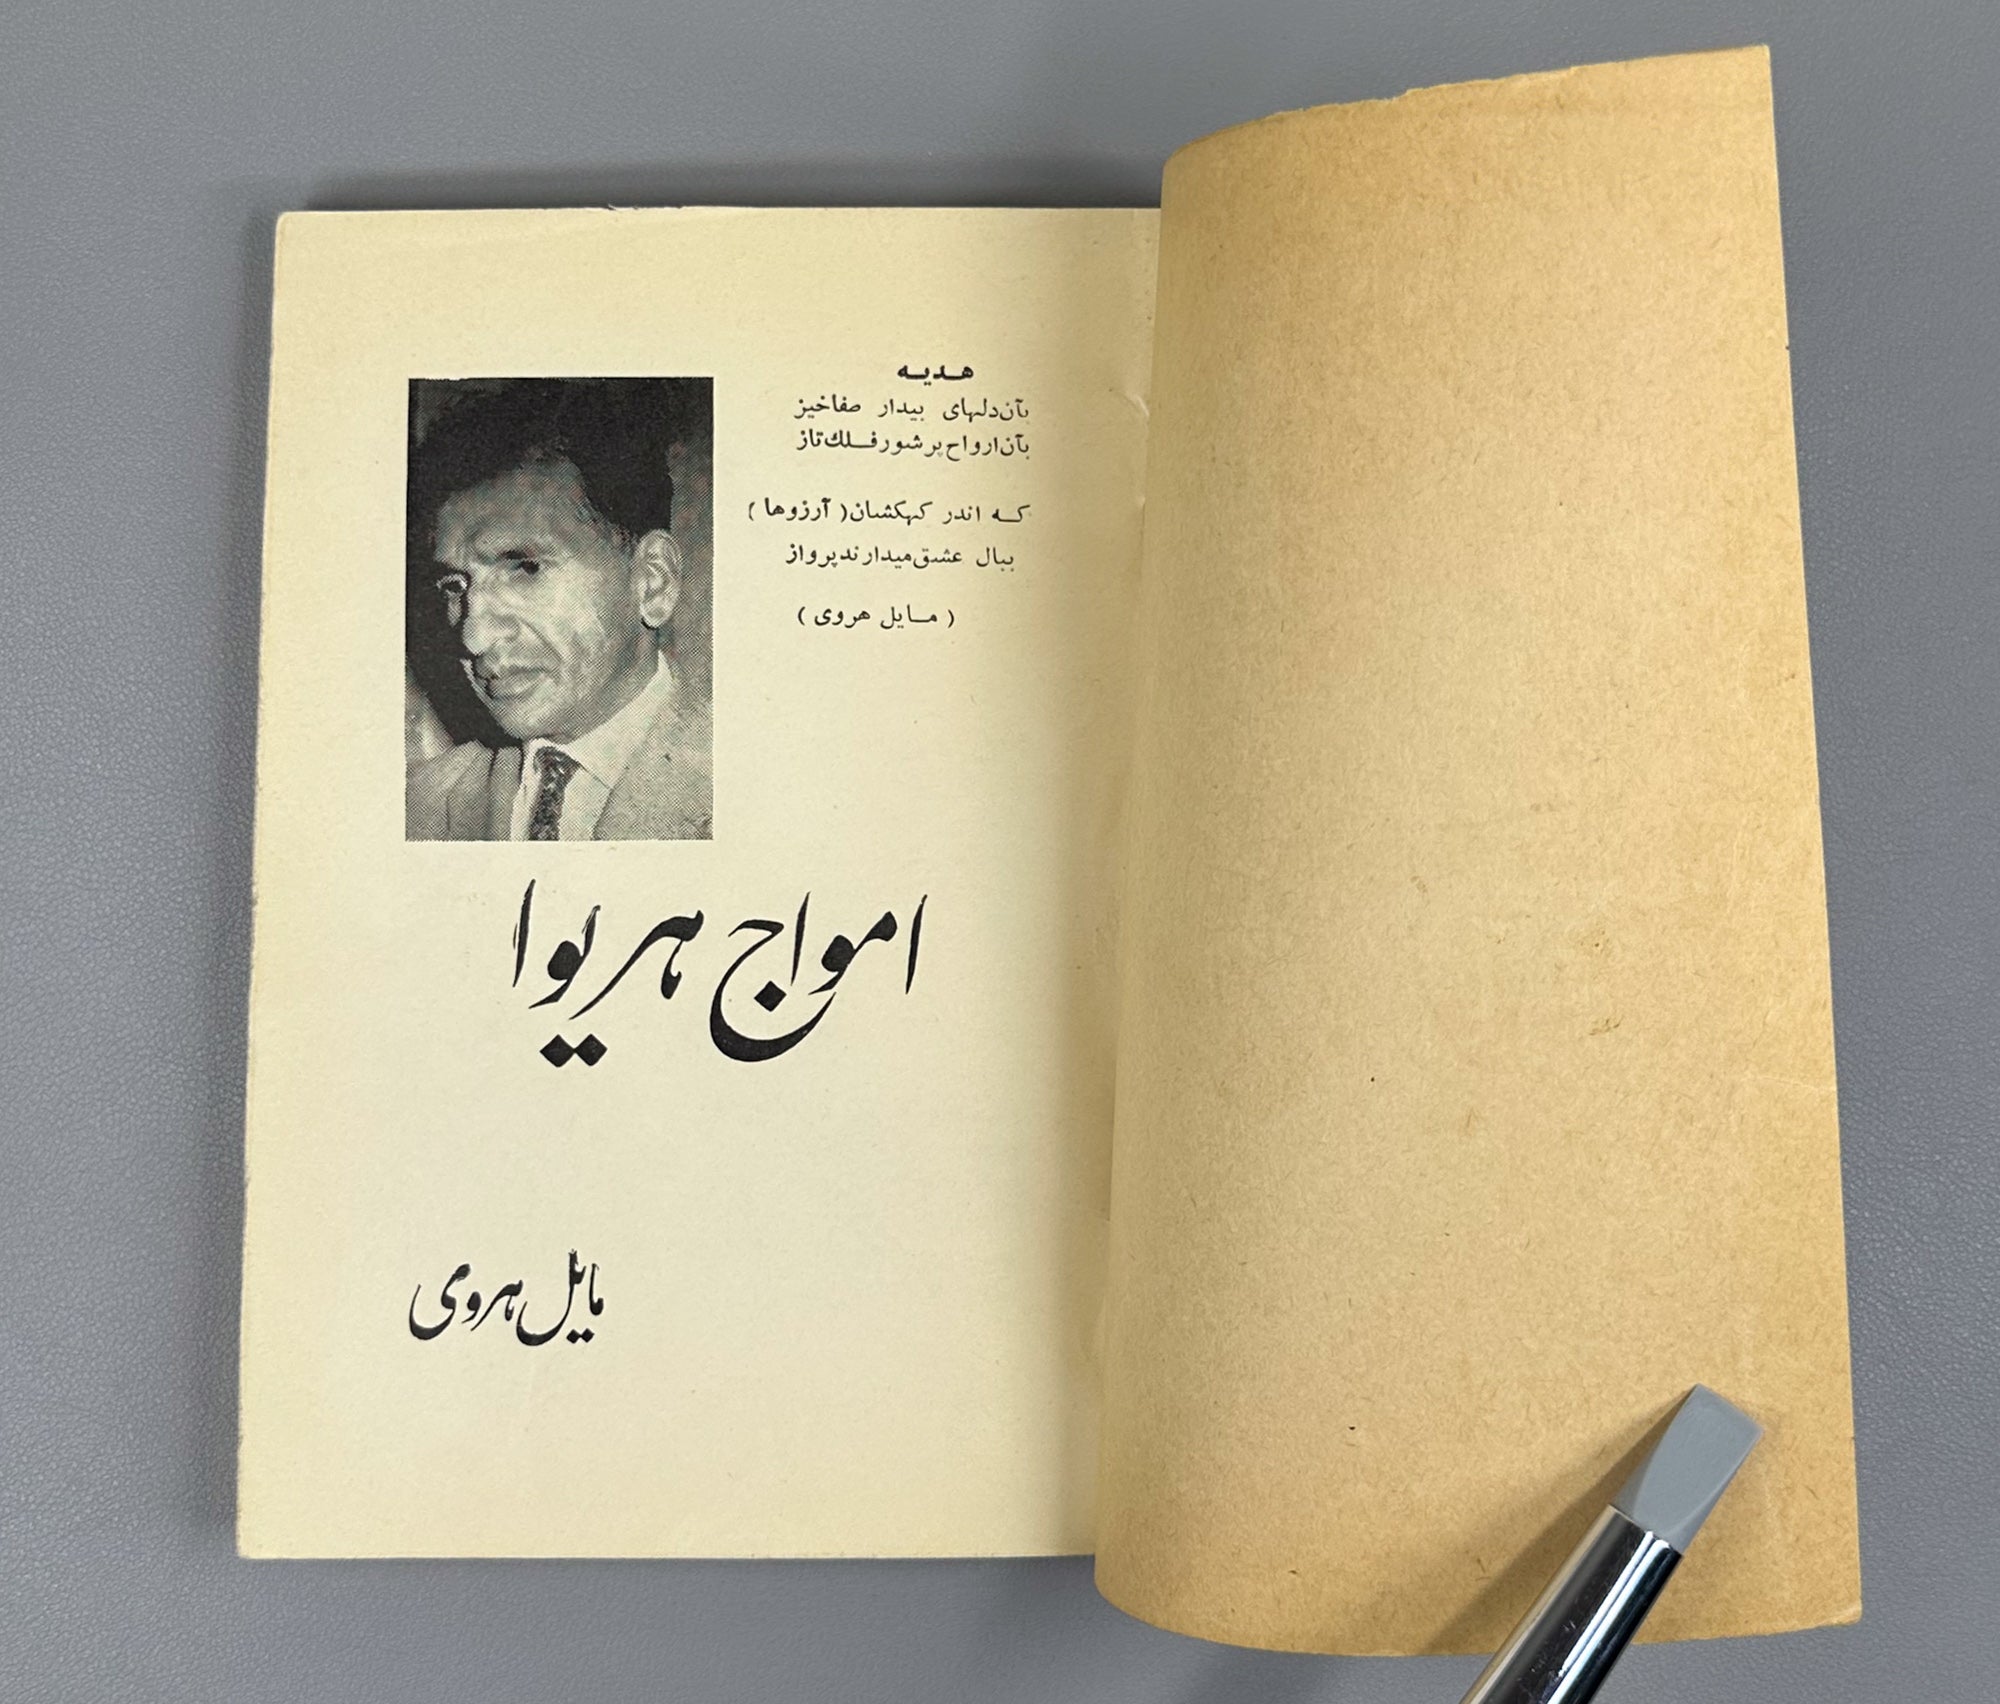 هدیه
بآن دلهای بیدار صفاخیز
بآن ارواح پر شور فلك تاز
که اندر کهکشان ( آرزوها )
ببال عشق میدارند پرواز
( مایل هروی )
امواج هریوا
مایل هروی